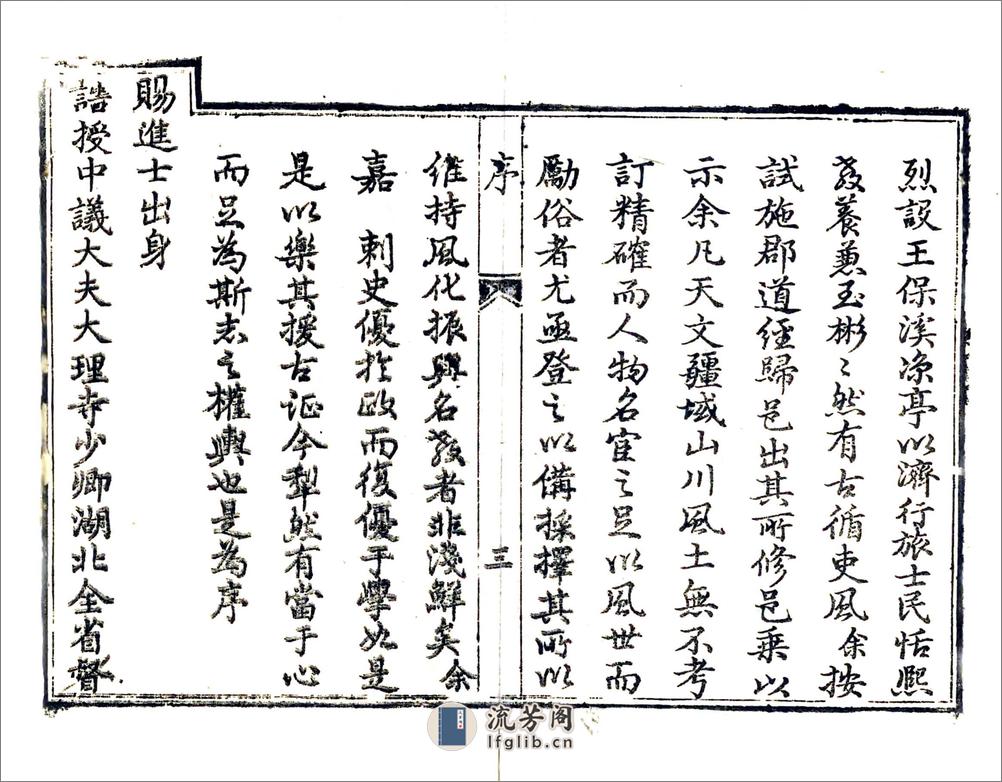 烈設王保溪涼亭以濟行旅士民恬熙
教養蕙玉彬〻然有古循吏風余按
試施郡道經歸邑出其所修邑乘以
示余凡天文疆域山川風土無不考
訂精確而人物名宦之足以風世而
勵俗者尤亟登之以備採擇其所以
序 三
維持風化振興名教者非淺鮮矣余
嘉 刺史優於政而復優于學如是
是以樂其援古证今犁然有當于心
而足為斯志之權輿也是為序
賜進士出身
誥授中議大夫大理寺少卿湖北全省督
流芳阁
lfglib.cn